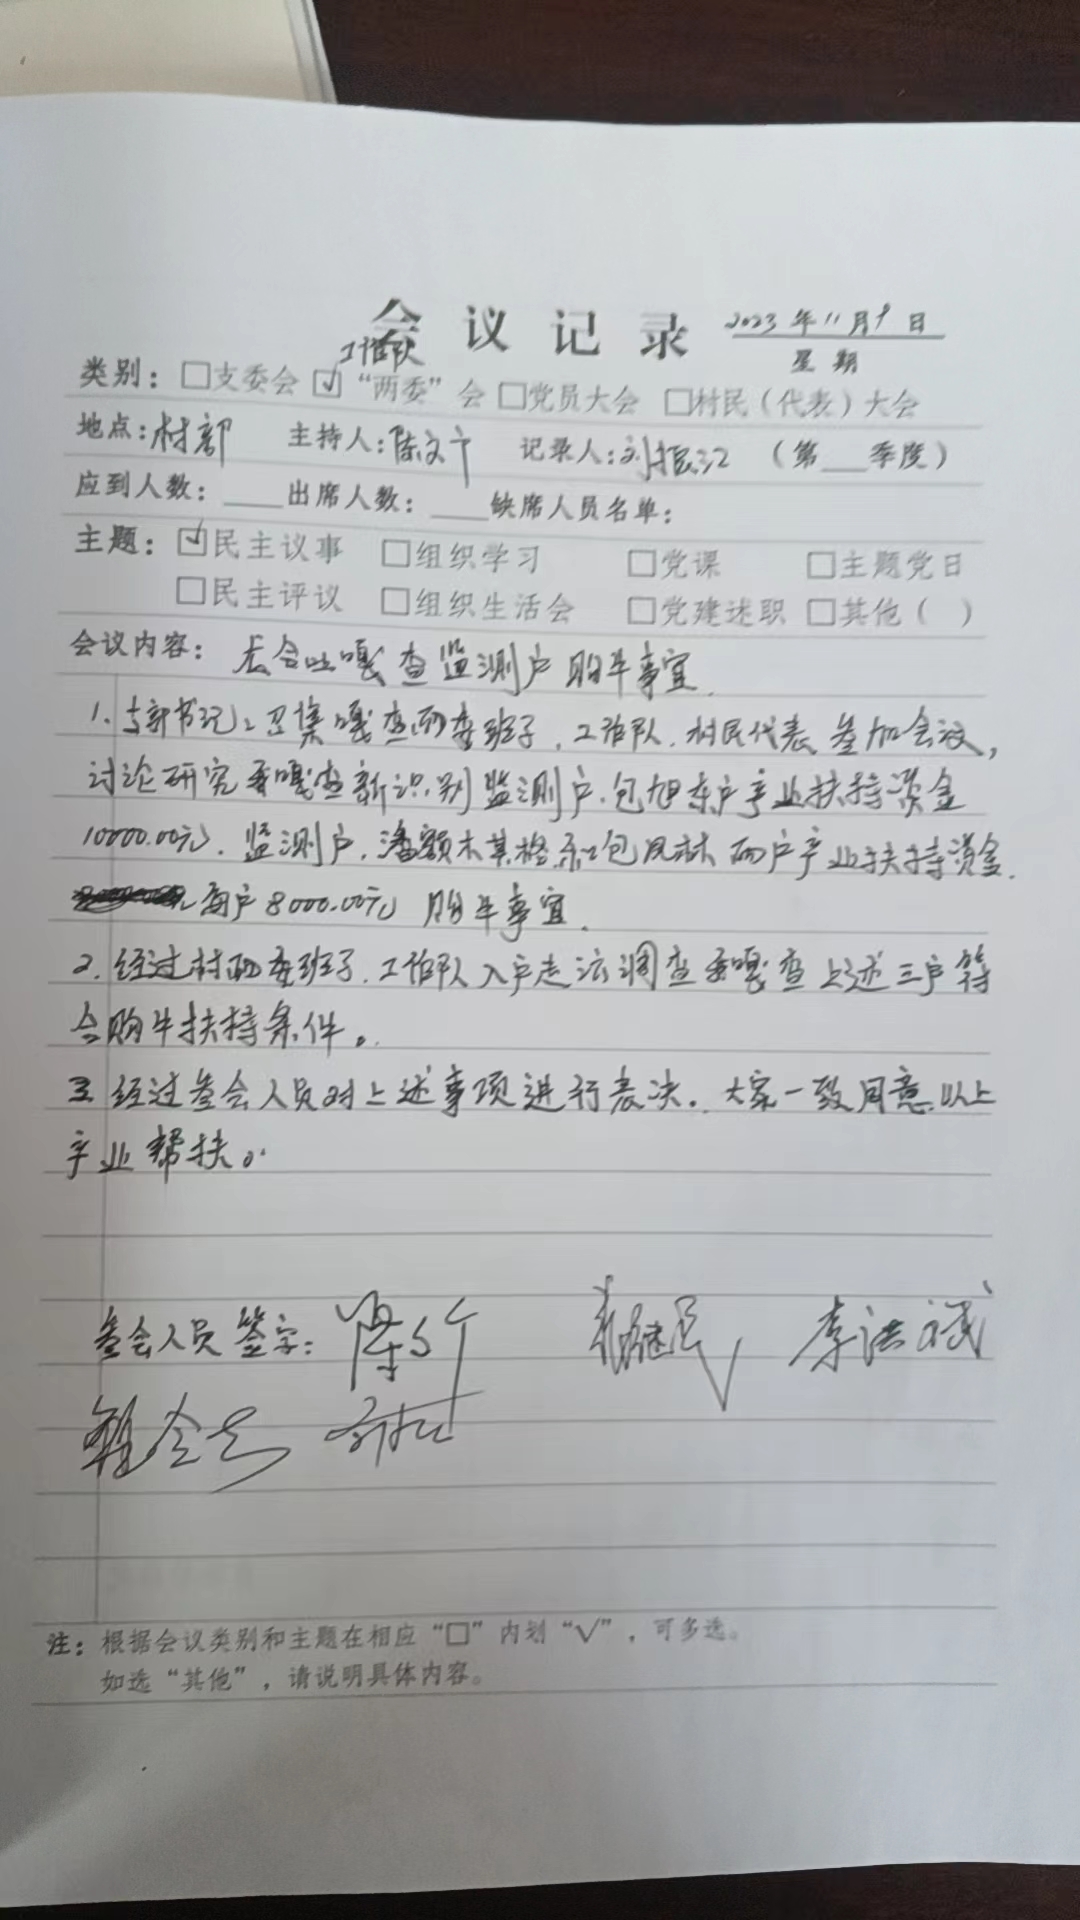 会议记录 2023年11月9日
星期
工作队
类别：□支委会 ☑“两委”会 □党员大会 □村民（代表）大会
地点：村部 主持人：陈文 记录人：刘振江 （第___季度）
应到人数：____出席人数：____缺席人员名单：
主题：☑民主议事 □组织学习 □党课 □主题党日
□民主评议 □组织生活会 □党建述职 □其他（ ）
会议内容：吐嘎查监测户购牛事宜.
1. 书记召集嘎查两委班子、工作队、村民代表参加会议，
讨论研究我嘎查新识别监测户.包旭东户产业扶持资金
10000.00元、监测户.潘额木其格和包凤林两户产业扶持资金.
每户8000.00元购牛事宜.
2. 经过村两委班子、工作队入户走访调查我嘎查上述三户符
合购牛扶持条件。
3 经过参会人员对上述事项进行表决.大家一致同意以上
产业帮扶。
参会人员签字：李洪斌
注：根据会议类别和主题在相应“□”内划“√”，可多选。
如选“其他”，请说明具体内容。